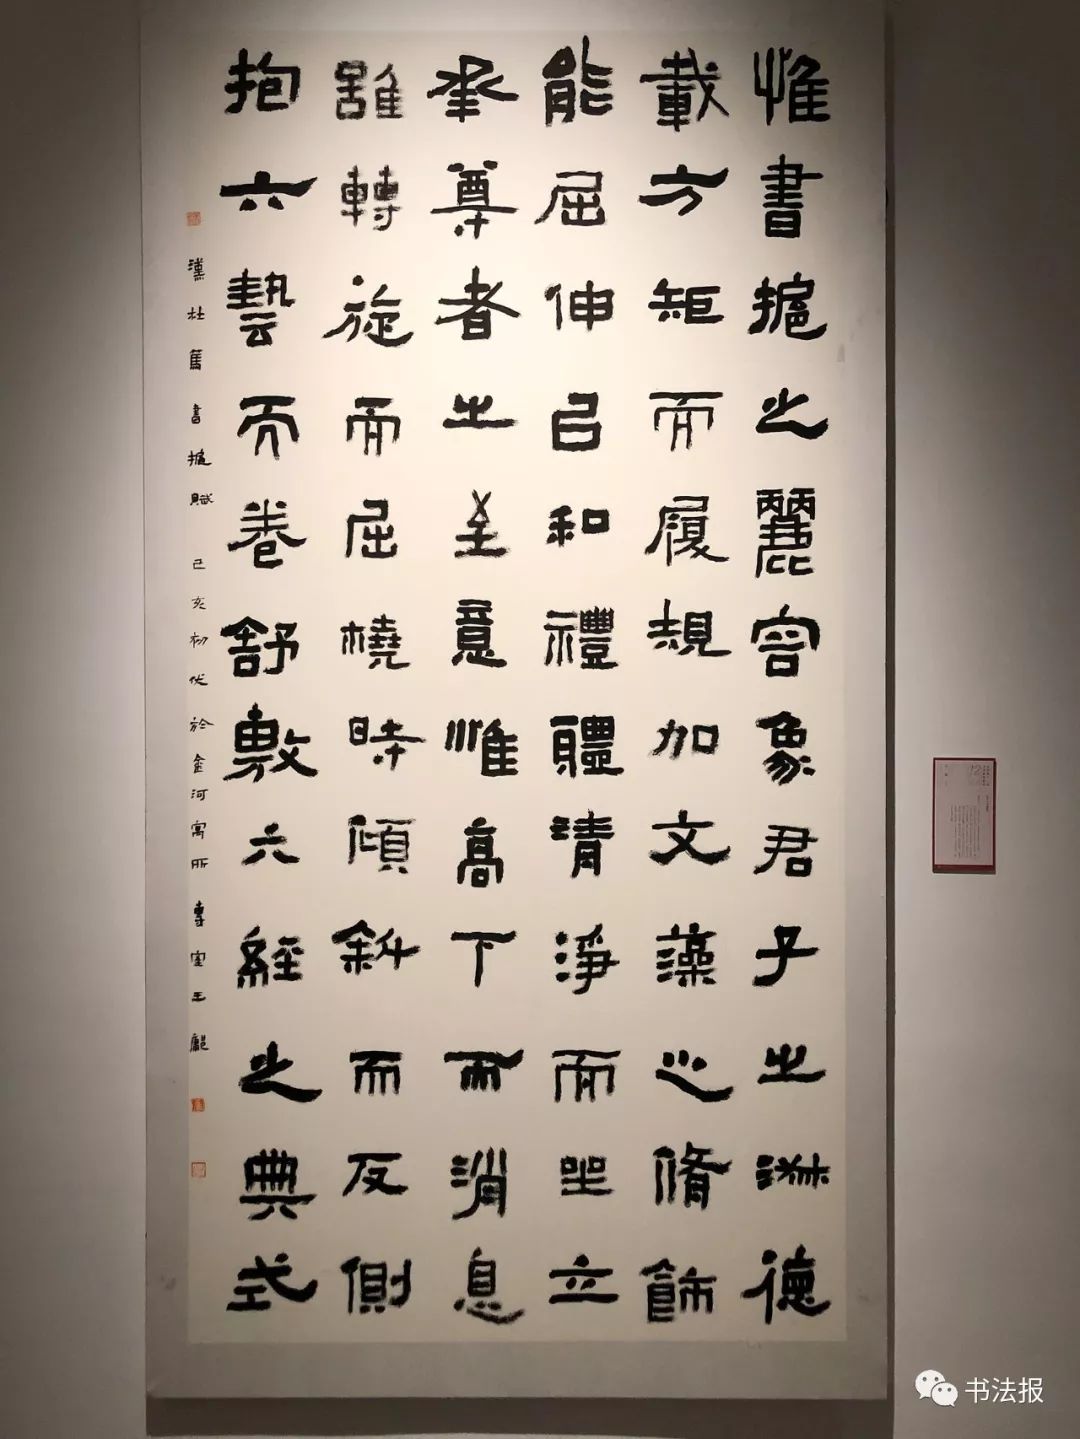 惟書㨿之麗容象君子之淑德
載方矩而履規加文藻之脩飾
能屈伸㠯和禮體清淨而坐立
承尊者之至意惟高下而消息
雖轉旋而屈橈時傾斜而反側
抱六藝而卷舒敷六經之典式
漢杜篤書㨿賦 己亥初伏於金河寓所 專室王
书法报